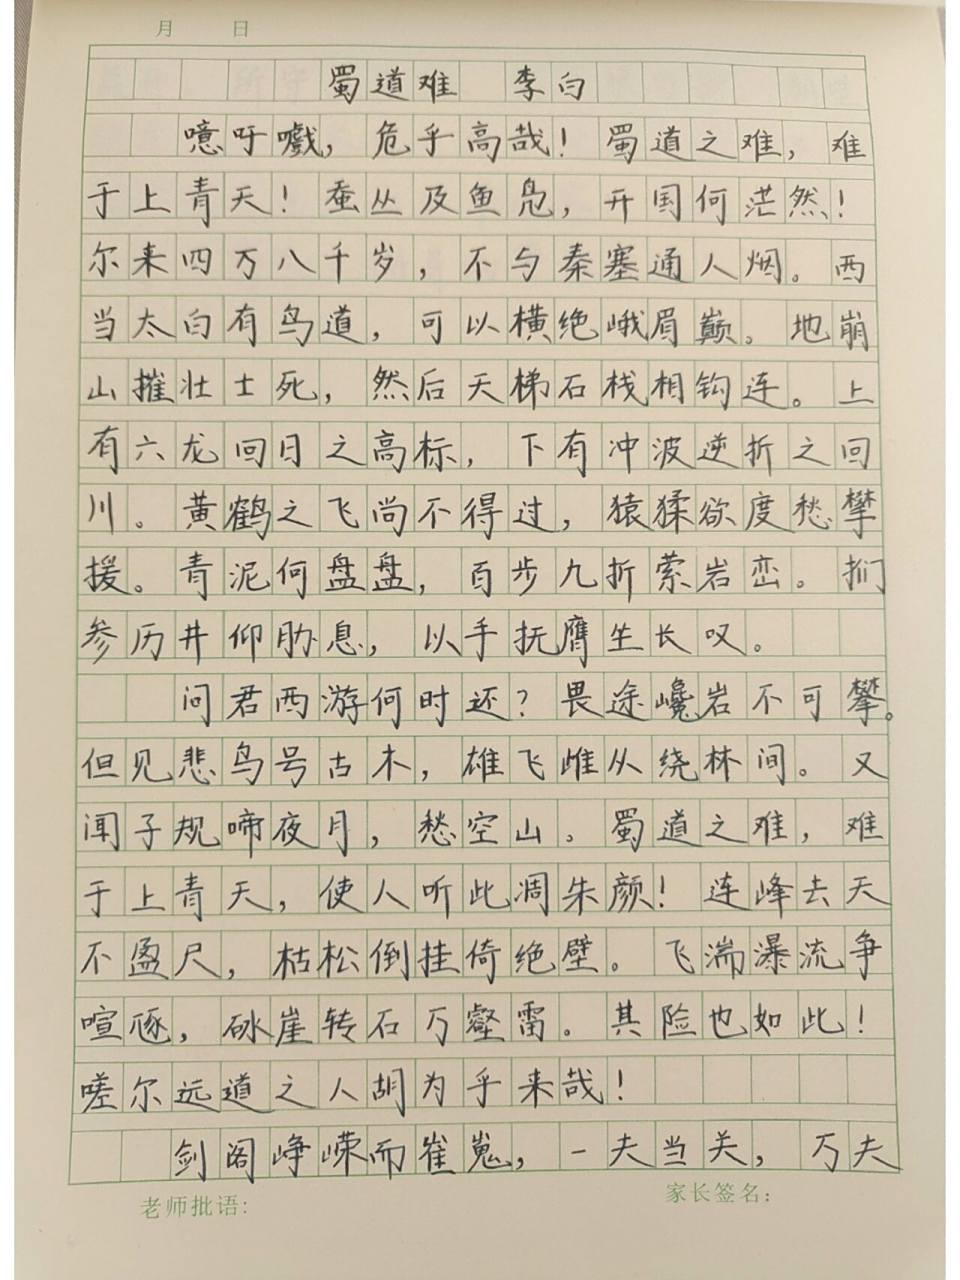 月 日
蜀道难 李白
噫吁嚱，危乎高哉！蜀道之难，难
于上青天！蚕丛及鱼凫，开国何茫然！
尔来四万八千岁，不与秦塞通人烟。西
当太白有鸟道，可以横绝峨眉巅。地崩
山摧壮士死，然后天梯石栈相钩连。上
有六龙回日之高标，下有冲波逆折之回
川。黄鹤之飞尚不得过，猿猱欲度愁攀
援。青泥何盘盘，百步九折萦岩峦。扪
参历井仰胁息，以手抚膺生长叹。
问君西游何时还？畏途巉岩不可攀。
但见悲鸟号古木，雄飞雌从绕林间。又
闻子规啼夜月，愁空山。蜀道之难，难
于上青天，使人听此凋朱颜！连峰去天
不盈尺，枯松倒挂倚绝壁。飞湍瀑流争
喧豗，砯崖转石万壑雷。其险也如此！
嗟尔远道之人胡为乎来哉！
剑阁峥嵘而崔嵬，一夫当关，万夫
老师批语： 家长签名：